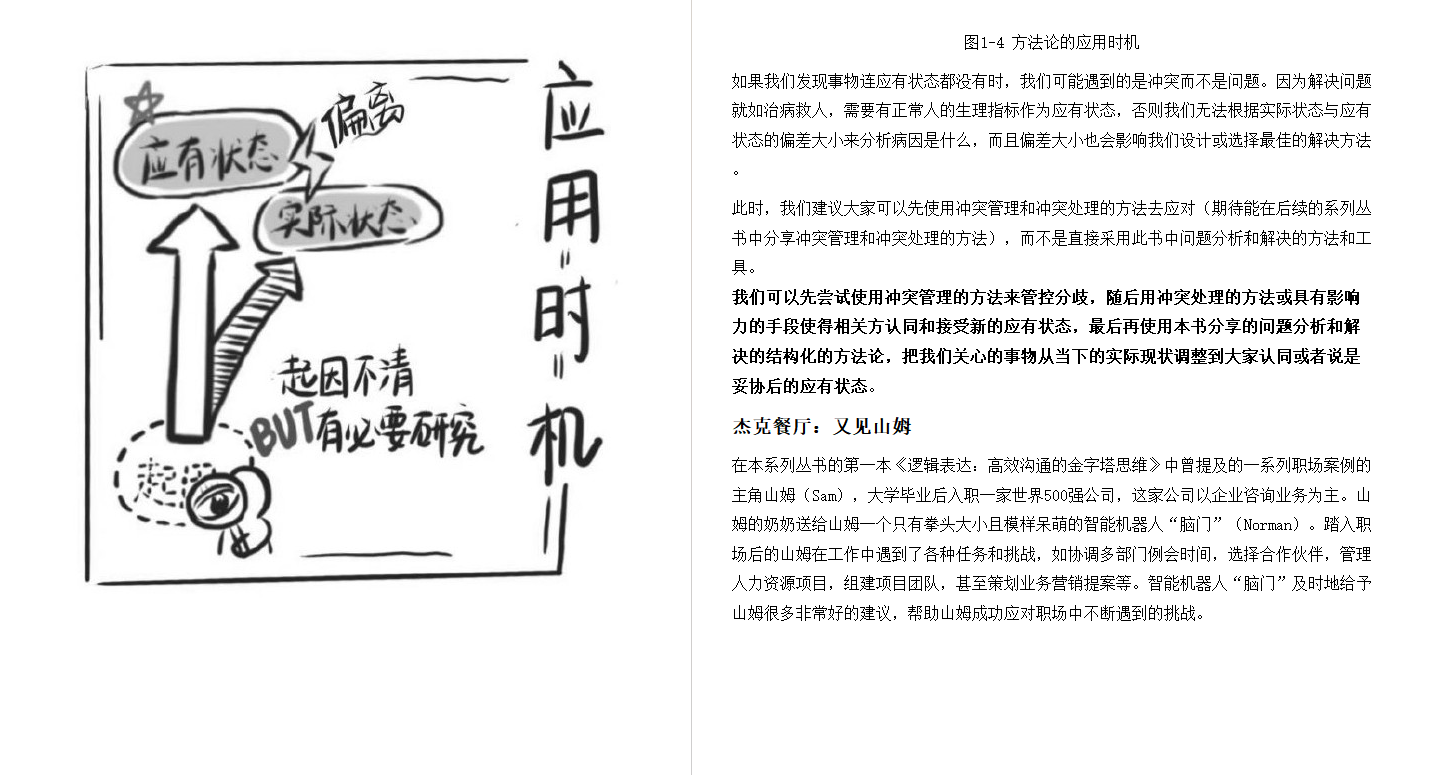 应用时机
偏离
应有状态
实际状态
起因不清
BUT有必要研究
起因
图1-4 方法论的应用时机
如果我们发现事物连应有状态都没有时，我们可能遇到的是冲突而不是问题。因为解决问题
就如治病救人，需要有正常人的生理指标作为应有状态，否则我们无法根据实际状态与应有
状态的偏差大小来分析病因是什么，而且偏差大小也会影响我们设计或选择最佳的解决方法
。
此时，我们建议大家可以先使用冲突管理和冲突处理的方法去应对（期待能在后续的系列丛
书中分享冲突管理和冲突处理的方法），而不是直接采用此书中问题分析和解决的方法和工
具。
我们可以先尝试使用冲突管理的方法来管控分歧，随后用冲突处理的方法或具有影响
力的手段使得相关方认同和接受新的应有状态，最后再使用本书分享的问题分析和解
决的结构化的方法论，把我们关心的事物从当下的实际现状调整到大家认同或者说是
妥协后的应有状态。
杰克餐厅：又见山姆
在本系列丛书的第一本《逻辑表达：高效沟通的金字塔思维》中曾提及的一系列职场案例的
主角山姆（Sam），大学毕业后入职一家世界500强公司，这家公司以企业咨询业务为主。山
姆的奶奶送给山姆一个只有拳头大小且模样呆萌的智能机器人“脑门”（Norman）。踏入职
场后的山姆在工作中遇到了各种任务和挑战，如协调多部门例会时间，选择合作伙伴，管理
人力资源项目，组建项目团队，甚至策划业务营销提案等。智能机器人“脑门”及时地给予
山姆很多非常好的建议，帮助山姆成功应对职场中不断遇到的挑战。